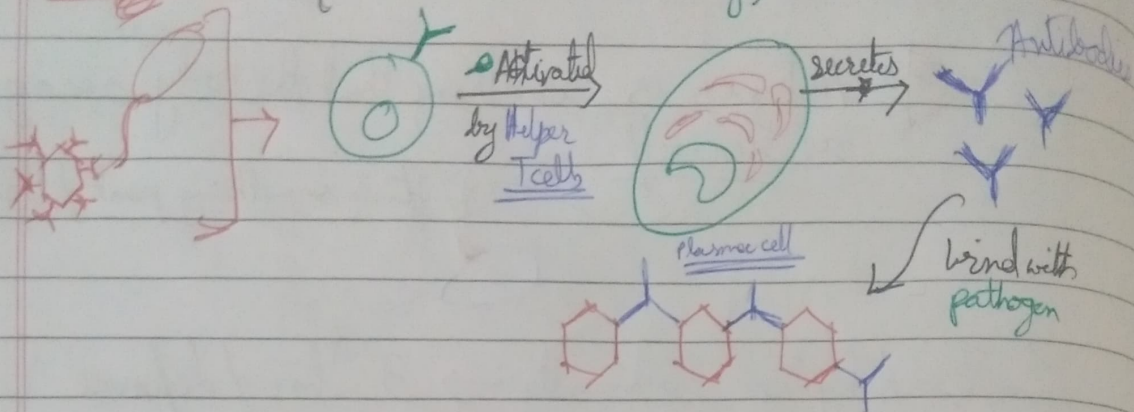 Activated
by Helper
T cells
secretes
Antibodies
Plasma cell
bind with
pathogen